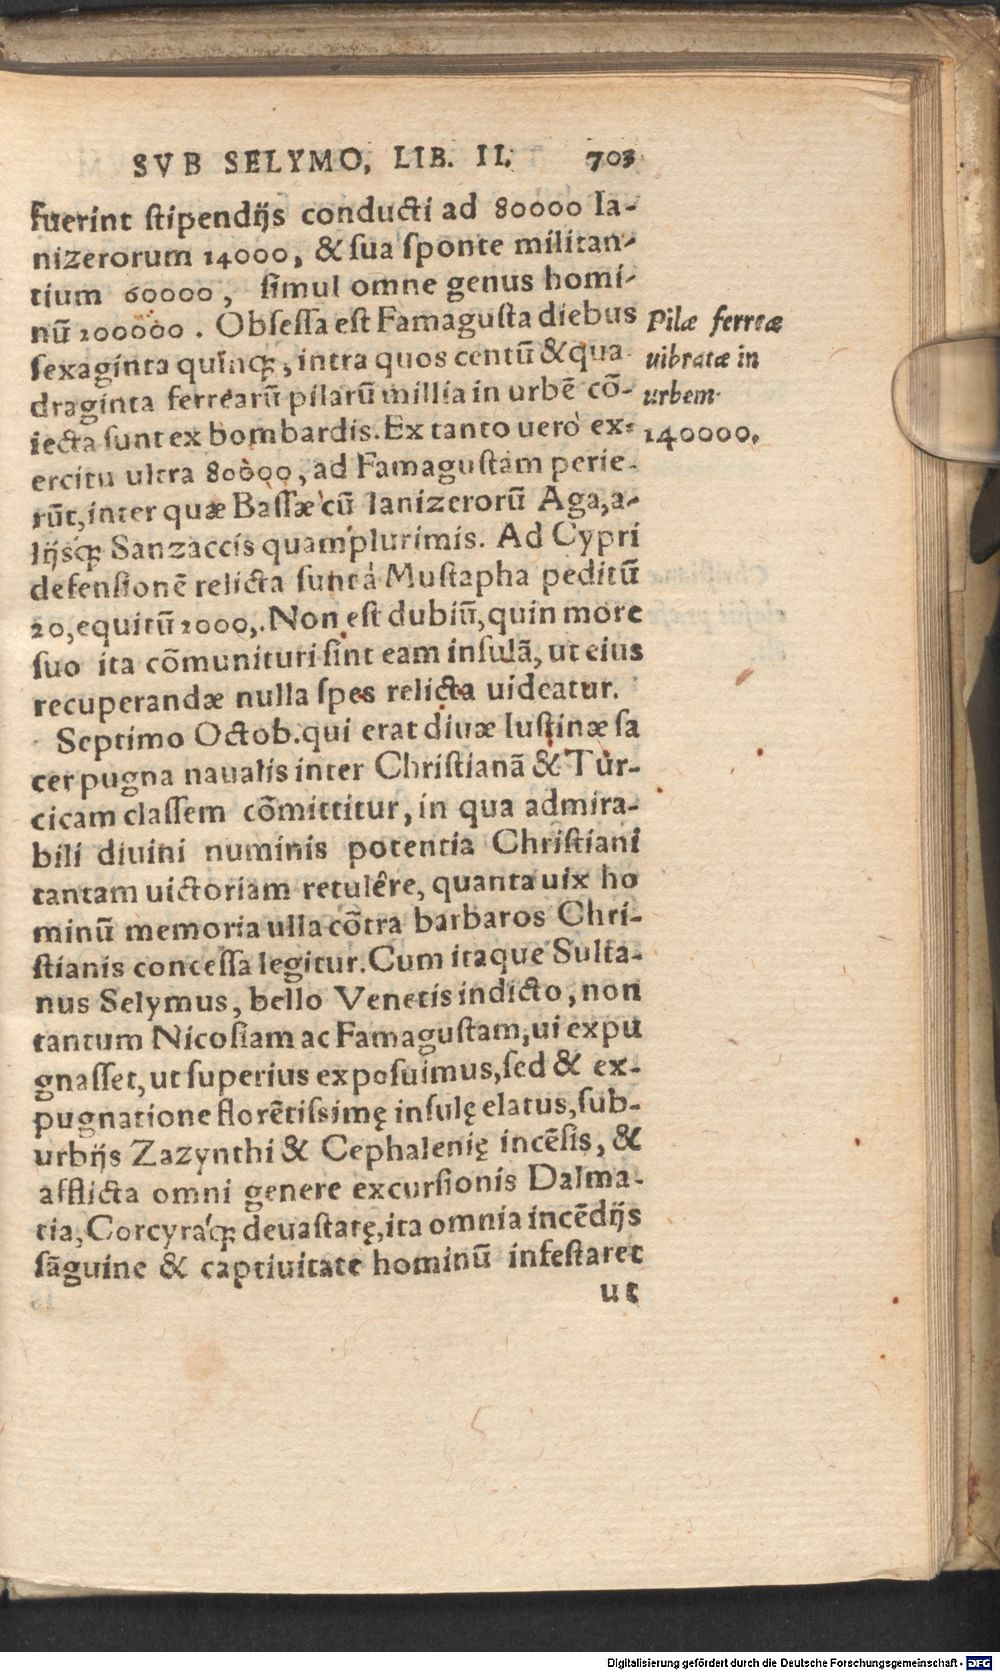 SVB SELYMO, LIB. II. 703
fuerint ſtipendijs conducti ad 80000 Ia-
nizerorum 14000, & ſua ſponte militan-
tium 60000, ſimul omne genus homi-
nũ 200000. Obſeſſa eſt Famaguſta diebus
ſexaginta quinq;, intra quos centũ & qua
draginta ferrearũ pilarũ millia in urbẽ cõ-
iecta ſunt ex bombardis. Ex tanto uerò ex-
ercitu ultra 80000, ad Famaguſtam perie-
rũt, inter quæ Baſſæ cũ Ianizerorũ Aga, a-
lijsq; Sanzaccis quamplurimis. Ad Cypri
defenſionẽ relicta ſunt á Muſtapha peditũ
20, equitũ 2000,. Non eſt dubiũ, quin more
ſuo ita cõmunituri ſint eam inſulã, ut eius
recuperandæ nulla ſpes relicta uideatur.
Septimo Octob. qui erat diuæ Iuſtinæ ſa
cer pugna naualis inter Chriſtianã & Tur-
cicam claſſem cõmittitur, in qua admira-
bili diuini numinis potentia Chriſtiani
tantam uictoriam retulêre, quanta uix ho
minũ memoria ulla cõtra barbaros Chri-
ſtianis conceſſa legitur. Cum itaque Sulta-
nus Selymus, bello Venetis indicto, non
tantum Nicoſiam ac Famaguſtam, ui expu
gnaſſet, ut ſuperius expoſuimus, ſed & ex-
pugnatione florẽtiſsimę inſulę elatus, ſub-
urbijs Zazynthi & Cephalenię incẽſis, &
afflicta omni genere excurſionis Dalma-
tia, Corcyráq; deuaſtatę, ita omnia incẽdijs
ſãguine & captiuitate hominũ infeſtaret
ut
Pilæ ferreæ
uibratæ in
urbem
140000.
Digitalisierung gefördert durch die Deutsche Forschungsgemeinschaft - DFG